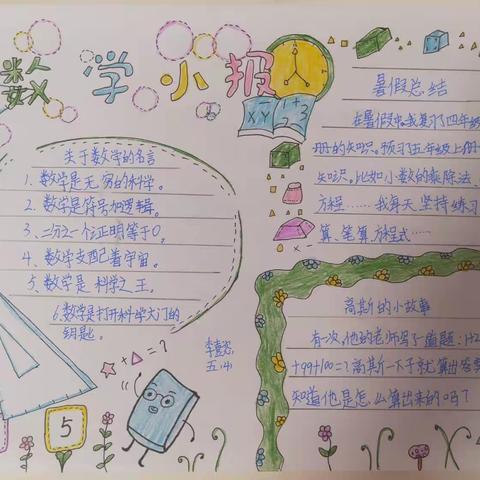 数学小报
XY
1+
23
关于数学的名言
1、数学是无穷的科学。
2、数学是符号加逻辑。
3、二分之一个证明等于0。
4、数学支配着宇宙。
5、数学是科学之王。
6、数学是打开科学大门的
钥匙。
+ - × ÷ = 10
5
五.(4)
暑假总结
在暑假中,我复习了四年级
册的知识。预习了五年级上册
知识。比如小数的乘除法、
方程……我每天坚持练习
算、笔算、方程式……
高斯的小故事
有一次,他的老师写了道题:1+2
+99+100=?高斯一下子就算出答案
知道他是怎么算出来的吗?